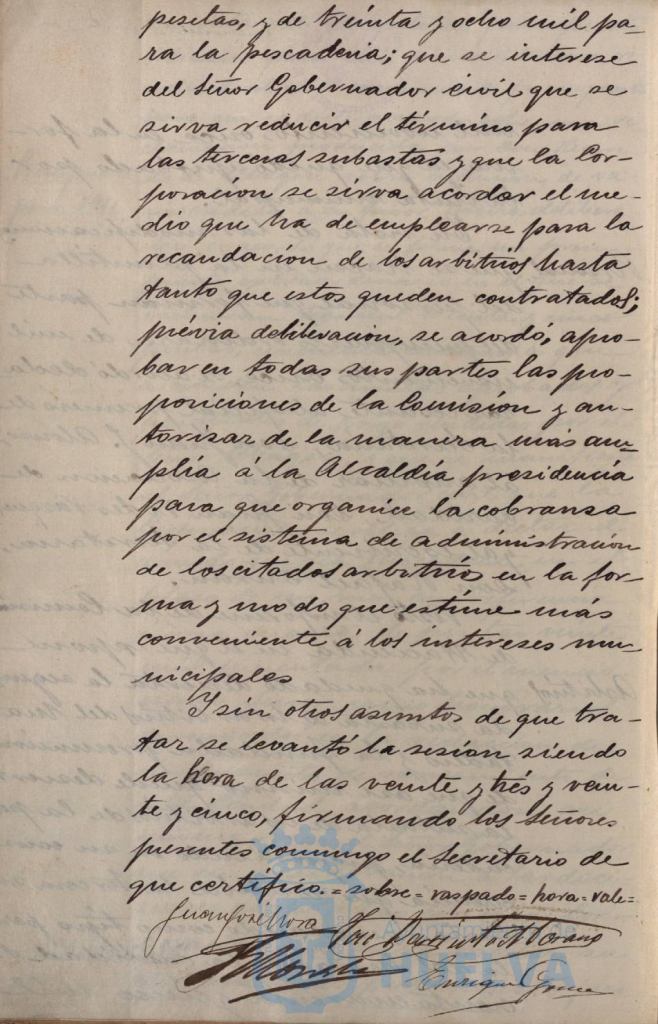 pesetas, y de treinta y ocho mil pa-
ra la pescaderia; que se interese
del Señor Gobernador civil que se
sirva reducir el término para
las terceras subastas y que la Cor-
poración se sirva acordar el me-
dio que ha de emplearse para la
recaudación de los arbitrios hasta
tanto que estos queden contratados;
prévia deliberación, se acordó, apro-
bar en todas sus partes las pro-
posiciones de la Comisión y au-
torisar de la manera más am-
plia á la Alcaldía presidencia
para que organice la cobransa
por el sistema de administración
de los citados arbitrios en la for-
ma y modo que estime más
conveniente á los intereses mu-
nicipales
Y sin otros asuntos de que tra-
tar se levantó la sesión siendo
la hora de las veinte y trés y vein-
te y cinco, firmando los Señores
presentes conmigo el Secretario de
que certifico. = sobre = raspado = hora = vale =
Juan José Mora
Enrique
Ayuntamiento de
HUELVA